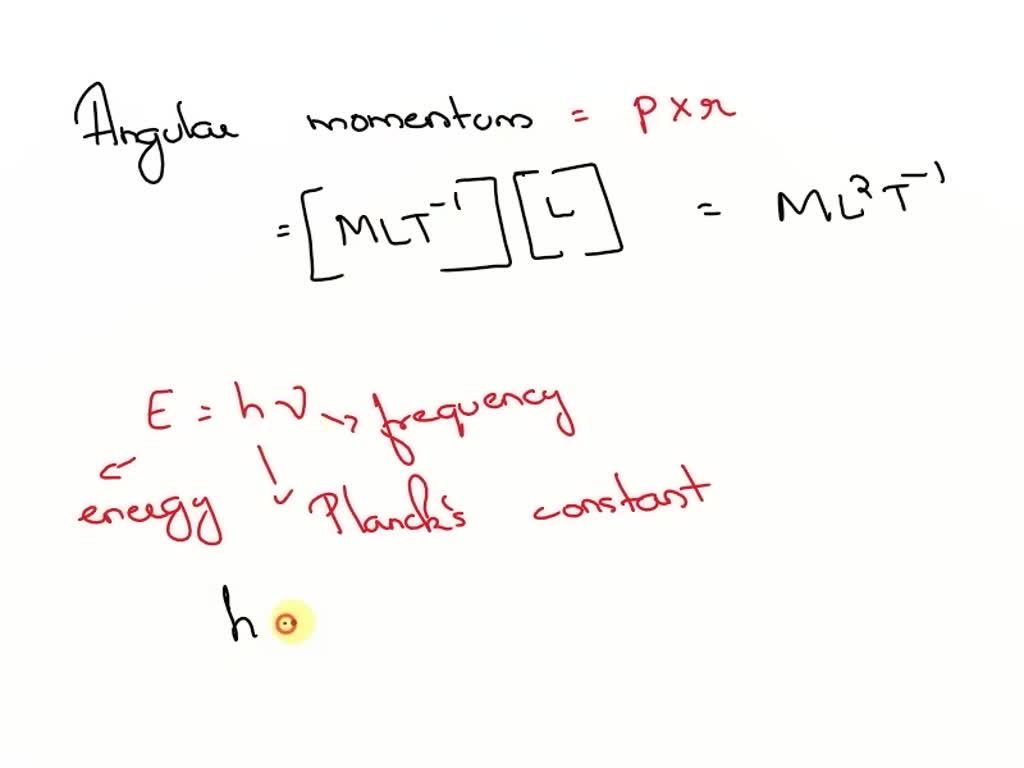 Angular momentum = p x r
= [MLT⁻¹] [L] = ML²T⁻¹
E = hν → frequency
energy Planck's constant
h